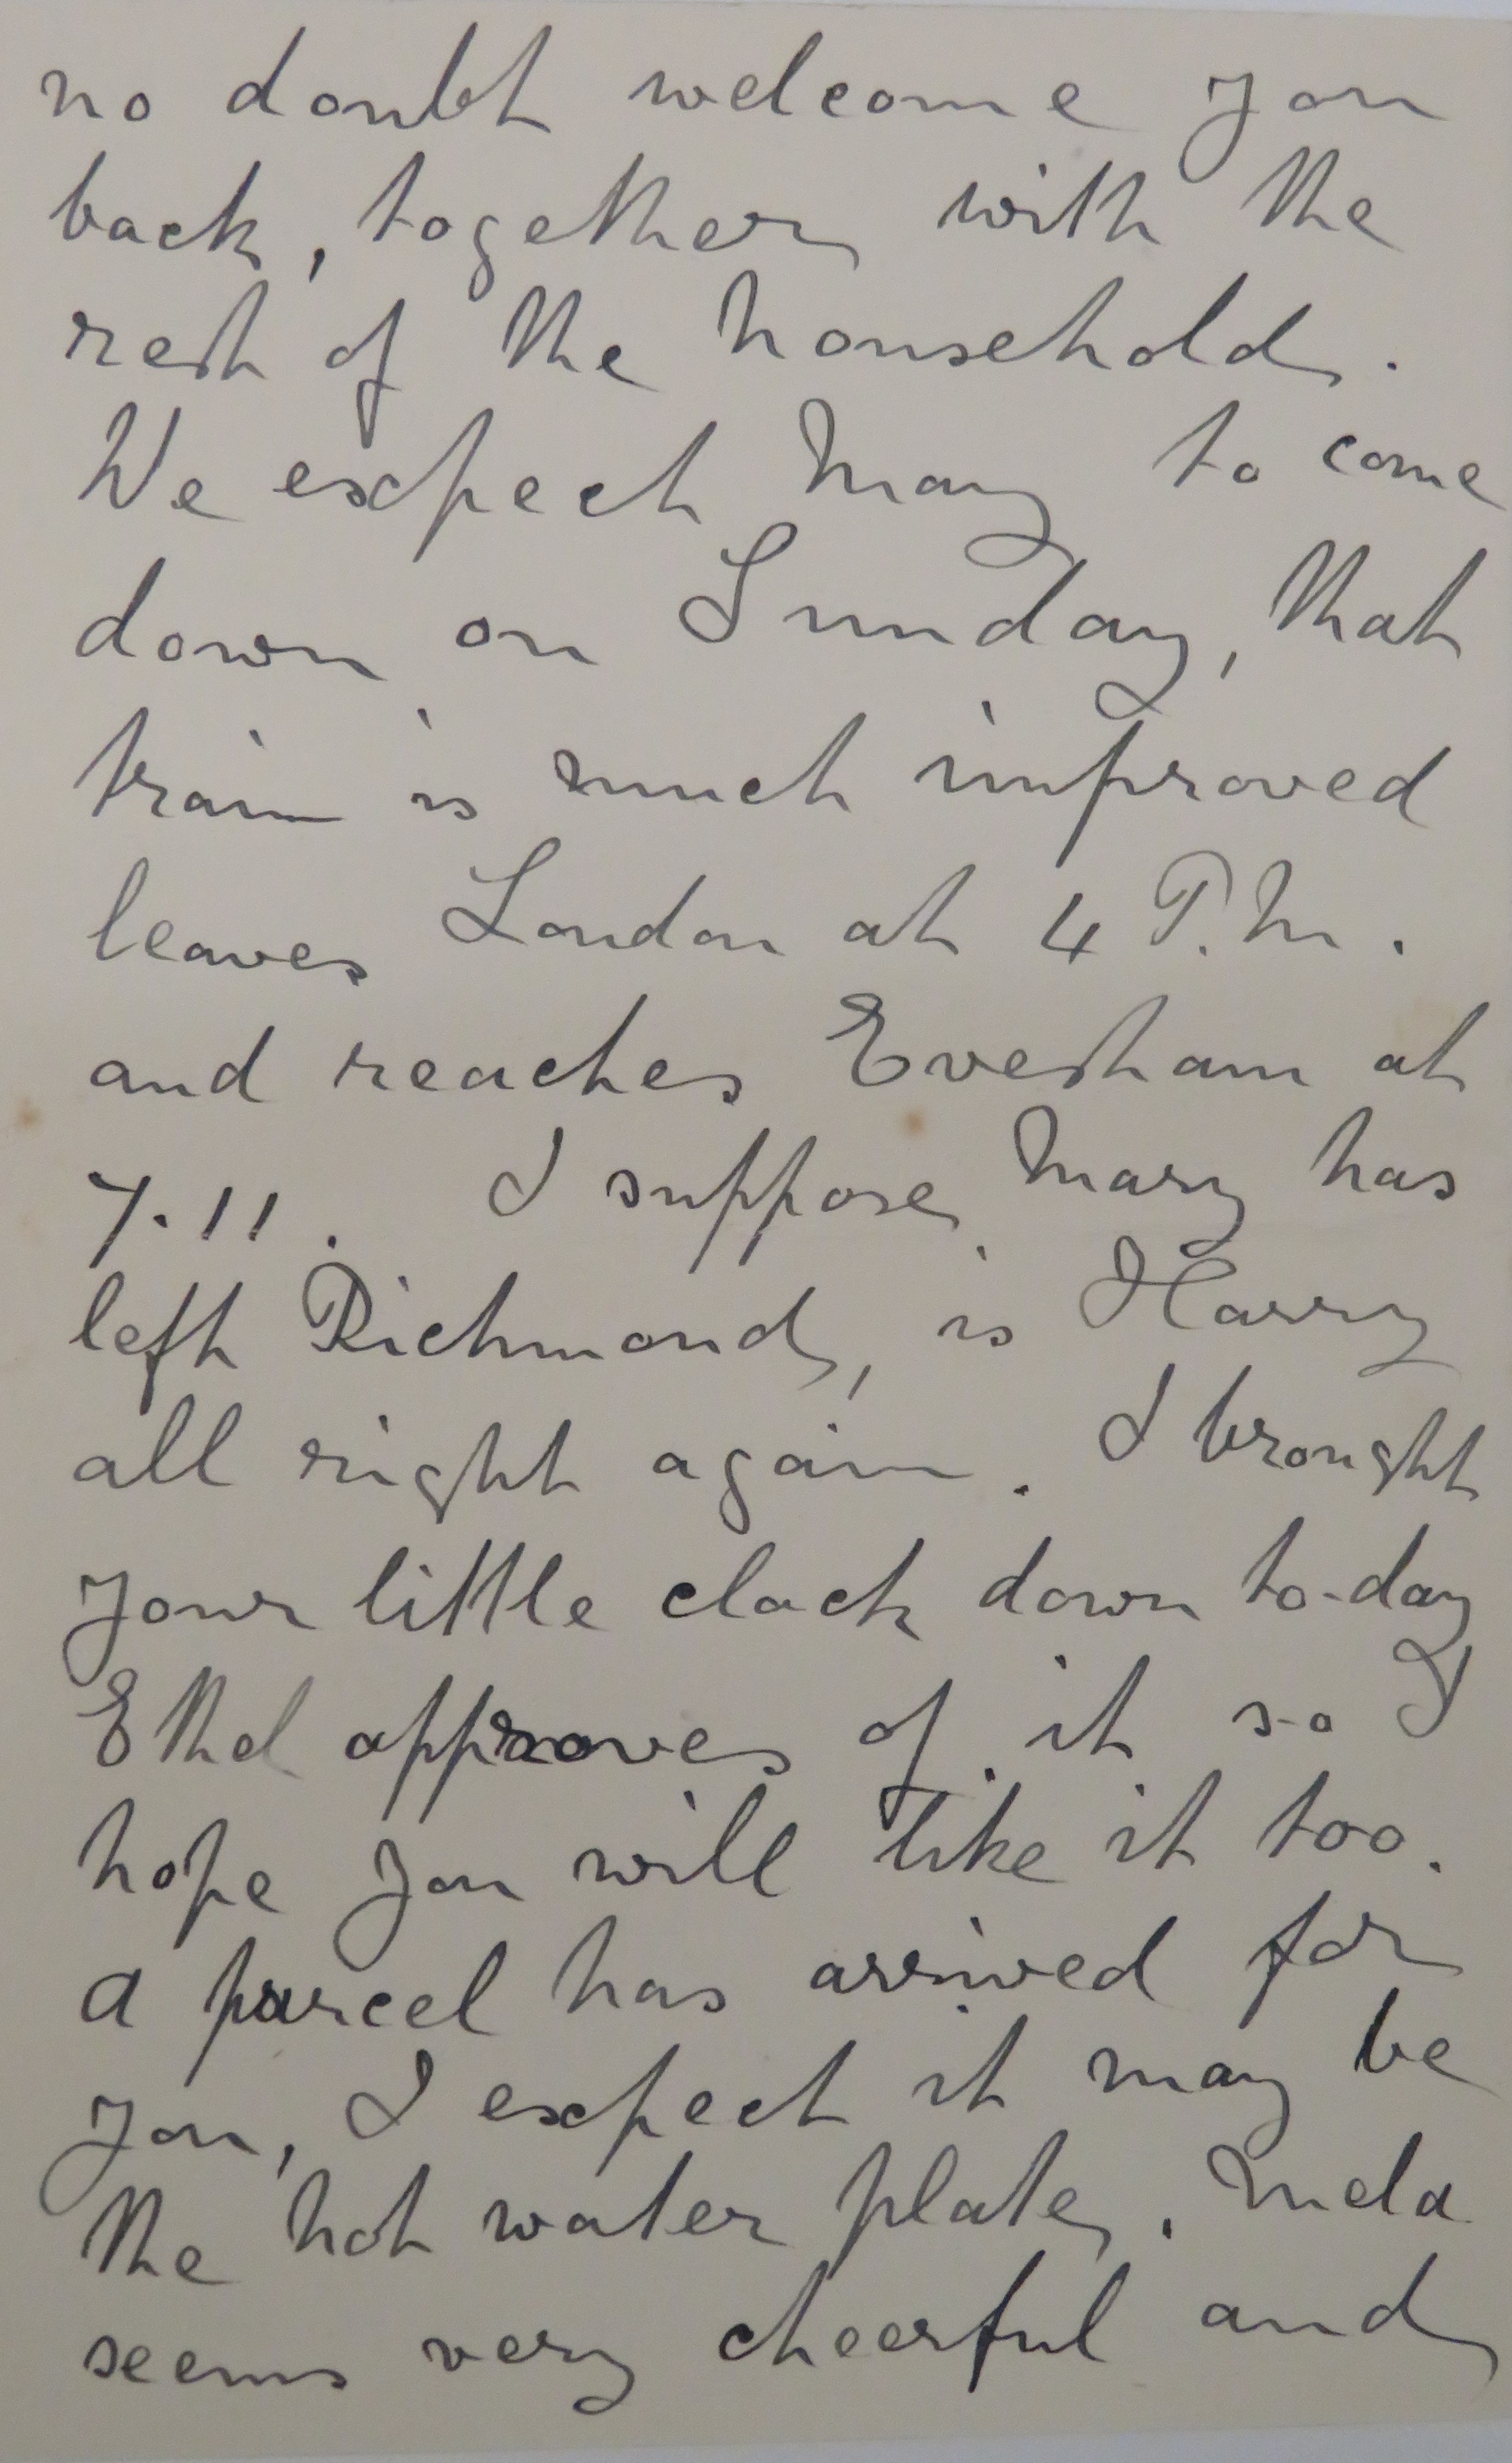 no doubt welcome you
back, together with the
rest of the household.
We expect May to come
down on Sunday, that
train is much improved
leaves London at 4 P.M.
and reaches Evesham at
7.11. I suppose Mary has
left Richmond, is Harry
all right again. I brought
your little clock down to-day
Ethel approves of it so I
hope you will like it too.
A parcel has arrived for
you, I expect it may be
the hot water plate. Mela
seems very cheerful and